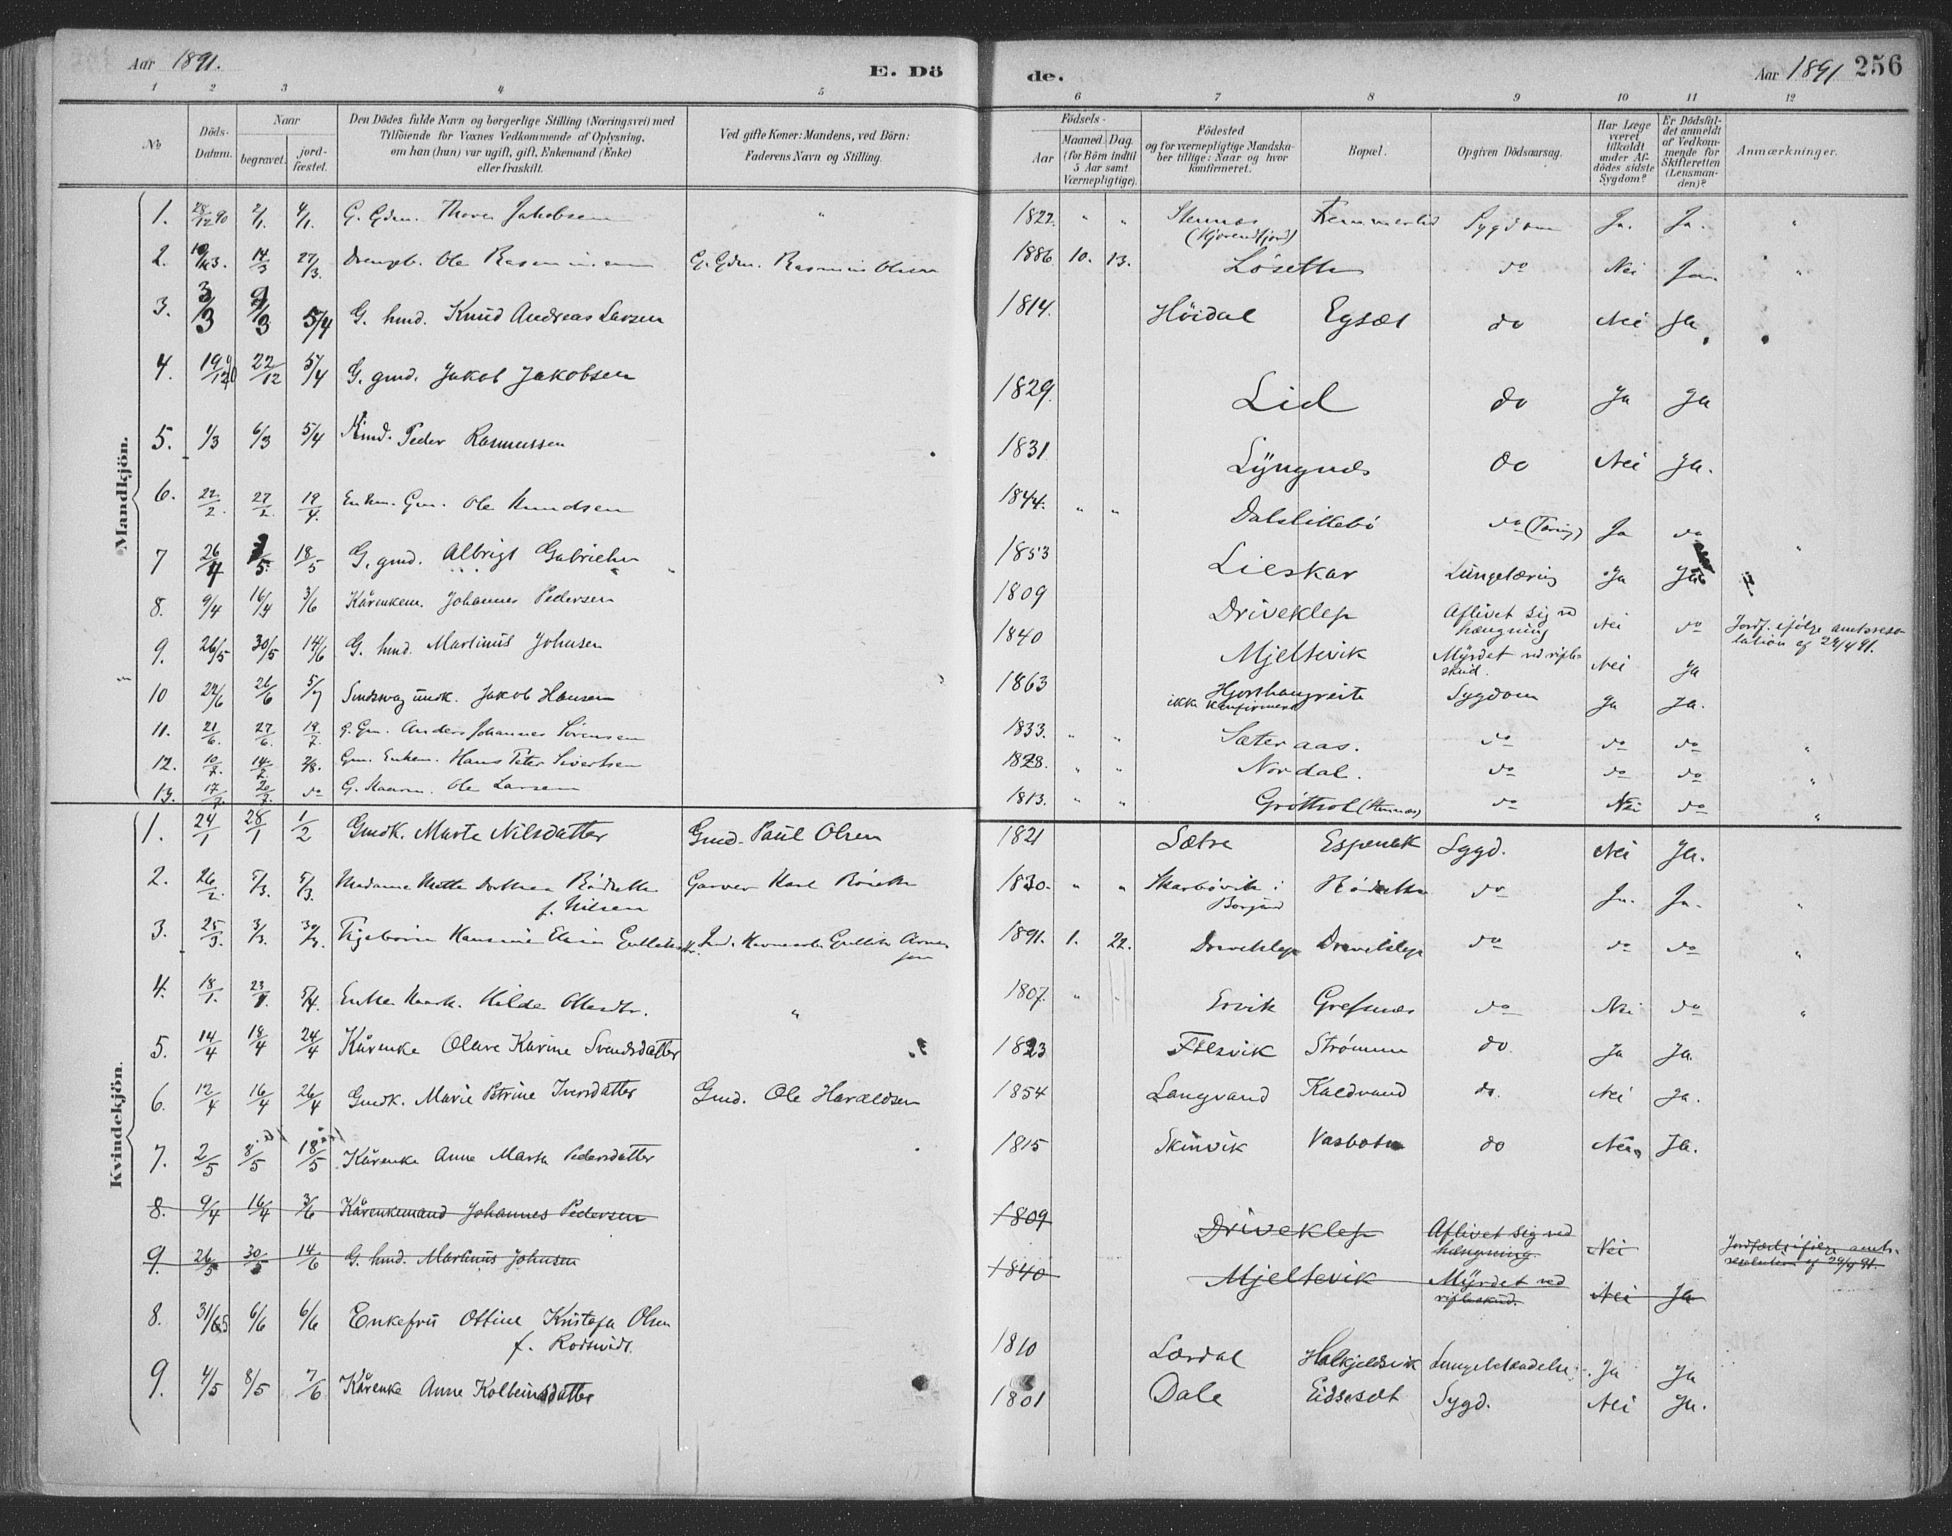 Aar 1891.
E. Dö
de.
Aar 1891
256
1 2 3 4 5 6 7 8 9 10 11 12
No
Döds-Datum.
Naar
begravet.
jord-fæstet.
Den Dödes fulde Navn og borgerlige Stilling (Næringsvei) med
Tilföiende for Voxnes Vedkommende af Oplysning,
om han (hun) var ugift, gift, Enkemand (Enke)
eller fraskilt.
Ved gifte Koner: Mandens, ved Börn:
Faderens Navn og Stilling.
Födsels-
Aar
Maaned.
Dag.
(for Börn indtil
5 Aar samt
Værnepligtige).
Födested
og for værnepligtige Mandska-
ber tillige: Naar og hvor
konfirmeret.
Bopæl.
Opgiven Dödsaarsag.
Har Læge
været
tilkaldt
under Af-
dödes sidste
Sygdom?
Er Dödsfal-
det anmeldt
af Vedkom-
mende for
Skifteretten
(Lensman-
den)?
Anmærkninger.
Mandkjön.
1. 28/12 90 2/1. 4/1. G. Gdm. Jakobsen " 1822. " " Stennes (Hjørendfjord) Sygdom Ja. Ja. "
2. 14/3 27/3. Drengb. Ole G. Gdm. Rasmus Olsen 1886 10. 13. Løseth do Nei Ja "
3. 3/3 9/3 5/4 G. hmd. Knud Andreas Larsen 1814. Höidal Egsæt do Nei Ja
4. 19/12 22/12 5/4 G. gmd. Jakob Jakobsen 1829. Lid do Ja Ja
5. 1/3 6/3 5/4 Kmd. Peder Rasmussen 1831 Lyngnes do Nei Ja.
6. 22/2. 27/2. 19/4. Enkm. Gm. Ole Knudsen 1844. " " Dalslillebö do (Tæring) Ja do "
7 26/4 /5. 18/5 G. gmd. Albrigt 1853 Lieskar Lungetæring Ja Ja
8. 9/4 16/4 3/6 Kårenkem. Johannes Pedersen 1809 Driveklep Aflivet sig ved hængning Nei do Jordf. ifølge amtsreso-lution af 29/4 91.
9. 26/5 30/5 14/6 G. hmd. Martinus Johnsen 1840 Mjeltevik Myrdet ved rifle-skud. Nei Ja
10 22/6 26/6 5/7 Sindssvag undk. Jakob Hansen 1863 Hjorthaugreite ikke Konfirmert Sygdom Ja Ja.
11. 21/6. 27/6. 19/7. G. Gm. Anders Johannes Sörensen 1833. " " Sæteraas. do do do "
12. 10/7. 14/7. 2/8. Gm. Enkem. Hans Peter Sivertsen 1828. " " Nordal. do do do "
13. 17/7. 20/7. do G. Ole Larsen 1813. " " (Stennes) do Nei do "
Kvindekjön.
1. 24/1 28/1 1/2 Gmdk. Marte Nilsdatter Gmd. Paul Olsen 1821 Sætre Sygd. Nei Ja.
2. 26/2. 5/3. 5/3. Madame Mette Dorthea f. Nilsen Garver Karl 1830. " " Skarbövik i Borgund do Ja. Ja. "
3. 25/3. 3/3. 30/3. Hansine 1891. 1. 22. Driveklep Driveklep do do do "
4. 18/1. 23/1. 5/4. Enke Kaark. Hilde " 1807. " Ervik Grefsnes do Nei do "
5. 14/4 18/4 24/4 Kårenke Olave Karine Svendsdatter 1823 Flesvik Strömmen do. Ja Ja.
6. 12/4 16/4 26/4 Gmdk. Marie Petrine Iversdatter Gmd. Ole Haraldsen 1854 Langvand Kaldvand do. Nei Ja.
7. 2/5 8/5 18/5 Kårenke Anne Marta Pedersdatter 1815 Skinvik Vasbotn do Nei Ja.
8. 9/4 16/4 3/6 Kårenkemand Johannes Pedersen 1809 Driveklep Aflivet sig ved hængning Nei Jordfæstet ifølge amts-resolution af 29/4 91.
9. 26/5 30/5 14/6 G. hmd. Martinus Johnsen 1840 Mjeltevik Myrdet ved rifleskud. Nei Ja
8. 31/5 6/6 6/6 Enkefru Ottine Kristofa Olsen f. Rodtwidt. 1810 Lærdal Lungebetændelse Ja Ja
9. 4/5 8/5 7/6 Kårenke Anne Kolbeinsdatter 1801 Dale Eidsesæt Sygd. Nei Ja.